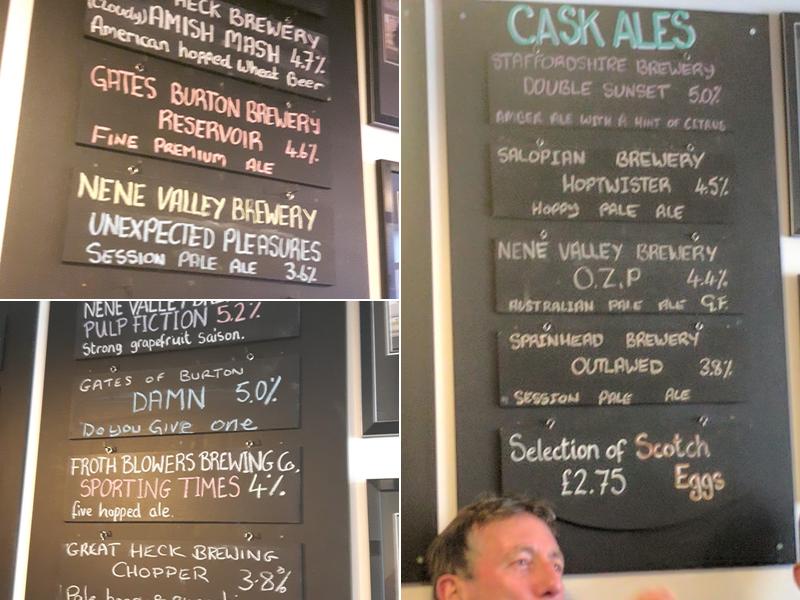 HECK BREWERY
(Cloudy) AMISH MASH 4.7%
American hopped Wheat Beer
GATES BURTON BREWERY
RESERVOIR 4.6%
FINE PREMIUM ALE
NENE VALLEY BREWERY
UNEXPECTED PLEASURES
SESSION PALE ALE 3.6%
NENE VALLEY
PULP FICTION 5.2%
Strong grapefruit saison.
GATES OF BURTON
DAMN 5.0%
Do you Give one
FROTH BLOWERS BREWING Co.
SPORTING TIMES 4%
five hopped ale.
GREAT HECK BREWING
CHOPPER 3.8%
CASK ALES
STAFFORDSHIRE BREWERY
DOUBLE SUNSET 5.0%
AMBER ALE WITH A HINT OF CITRUS
SALOPIAN BREWERY
HOPTWISTER 4.5%
HOPPY PALE ALE
NENE VALLEY BREWERY
O.Z.P 4.4%
AUSTRALIAN PALE ALE G.F.
SPRINHEAD BREWERY
OUTLAWED 3.8%
SESSION PALE ALE
Selection of Scotch
£2.75 Eggs